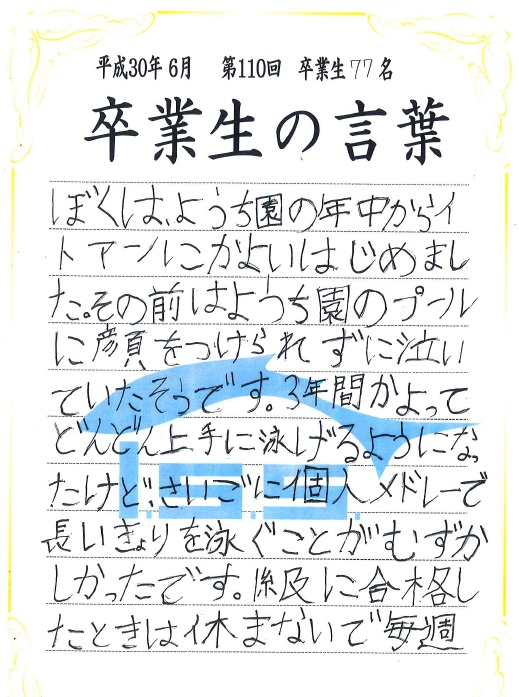 平成30年6月 第110回 卒業生77名
卒業生の言葉
ぼくは、ようち園の年中からイ
トアールにかよいはじめまし
た。その前はようち園のプール
に顔をつけられずに泣い
ていたそうです。3年間かよって
どんどん上手に泳げるようになっ
たけど、さいごに個人メドレーで
長いきょりを泳ぐことがむずか
しかったです。級に合格し
たときは休まないで毎週
I.S.S.